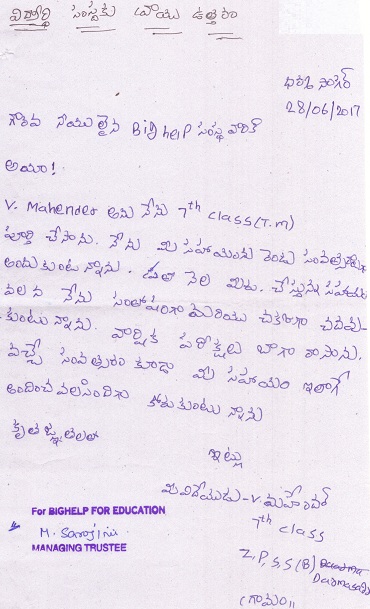 విద్యార్థి సంస్థకు వ్రాయు ఉత్తరం
28/06/2017
గౌరవ నీయులైన Big help సంస్థ వారికి
అయా!
V. Mahender అను నేను 7th class (T.m)
పూర్తి చేసాను. నేను మీ సహాయంను రెండు సంవత్సరాలుగా
అందుకుంటున్నాను. ప్రతి నెల మీరు. చేస్తున్న సహాయం
వలన నేను సంతోషంగా మరియు చక్కగా చదువు-
కుంటున్నాను. వార్షిక పరీక్షలు బాగా రాసాను.
వచ్చే సంవత్సరం కూడా మీ సహాయం ఇలాగే
అందించవలసిందిగా కోరుకుంటున్నాను
కృతజ్ఞతలతో
ఇట్లు
మీ విదేయుడు - V. మహేందర్
7th class
Z.P.S.S (B)
గ్రామం॥
For BIGHELP FOR EDUCATION
M. Sarojini
MANAGING TRUSTEE